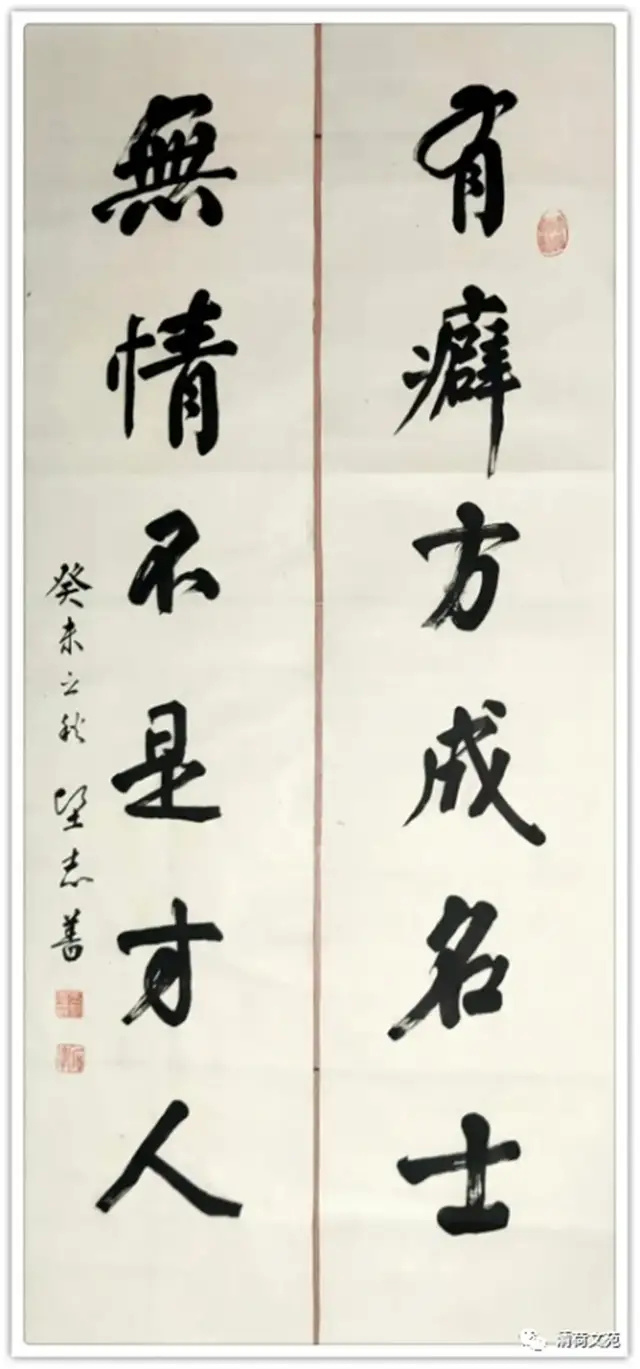 有癖方成名士
無情不是才人
癸未之秋 望志善
清荷文苑